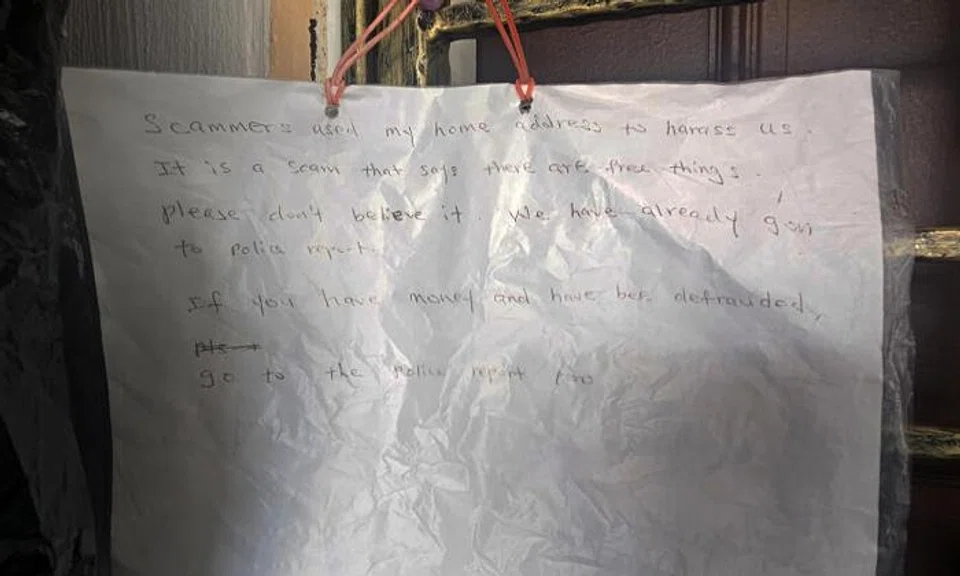 Scammers used my home address to harass us.
It is a scam that says there are free things.
please don't believe it. We have already gon
to police report.
If you have money and have be defrauded,
go to the police report too